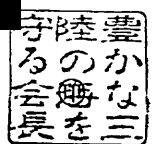 豊かな三
陸の海を
守る会長